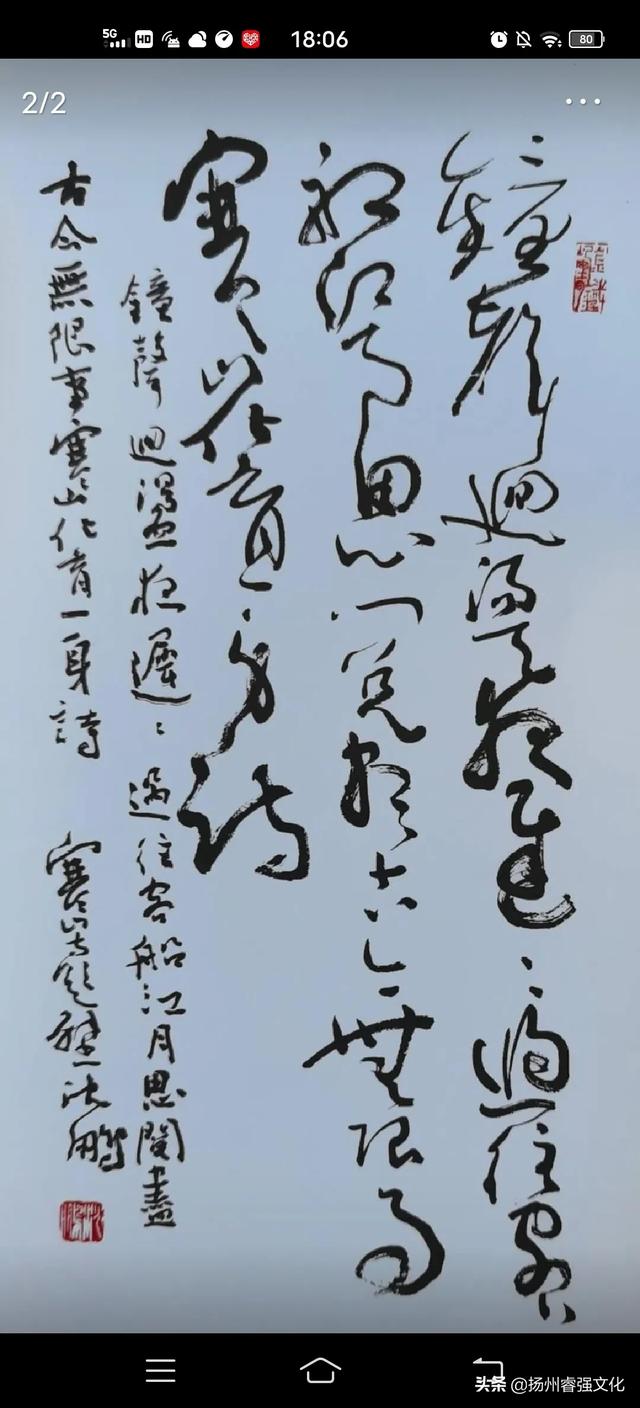 5G HD 18:06 80
2/2
鐘聲迴盪夜遲〻過往客
船江月思閱盡古今無限事
寒山化育一身詩
鐘聲迴盪夜遲〻過往客船江月思閱盡
古今無限事寒山化育一身詩 寒山寺題壁沈鵬
头条 @扬州睿强文化